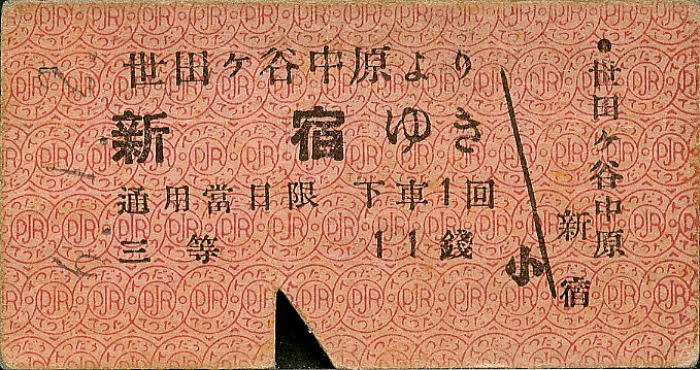 世田ヶ谷中原より
新宿ゆき
通用當日限 下車1回
三等 11錢
小
●世田ヶ谷中原
新宿
6.1.2